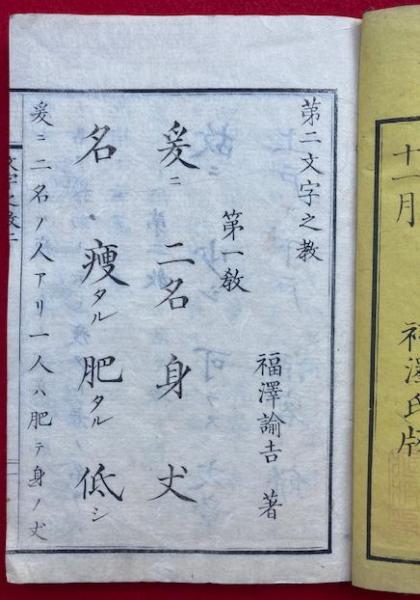 十一月
福澤氏版
第二文字之教
第一教
福澤諭吉 著
爰ニ 二名 身 丈
名 痩タル 肥タル 低シ
爰ニ二名ノ人アリ一人ハ肥テ身ノ丈